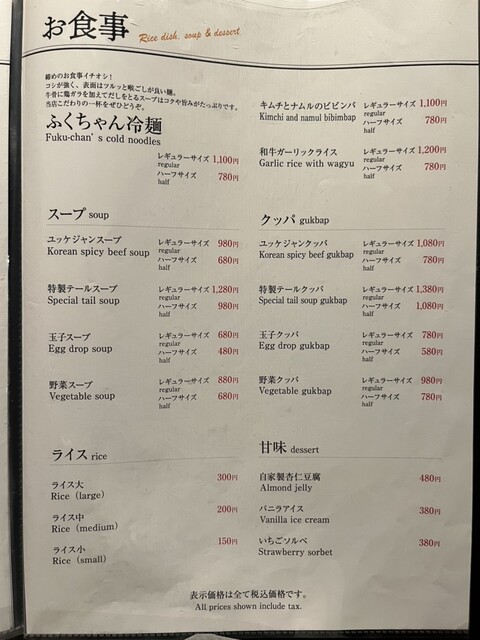 お食事 Rice dish, soup & dessert
締めのお食事イチオシ!
コシが強く、表面はツルッと喉ごしが良い麺。
牛骨に鶏ガラを加えてだしをとるスープはコクや旨みがたっぷりです。
当店こだわりの一杯をぜひどうぞ。
ふくちゃん冷麺
Fuku-chan's cold noodles
レギュラーサイズ 1,100円
regular
ハーフサイズ 780円
half
キムチとナムルのビビンバ レギュラーサイズ 1,100円
Kimchi and namul bibimbap regular
ハーフサイズ 780円
half
和牛ガーリックライス レギュラーサイズ 1,200円
Garlic rice with wagyu regular
ハーフサイズ 780円
half
スープ soup
ユッケジャンスープ レギュラーサイズ 980円
Korean spicy beef soup regular
ハーフサイズ 680円
half
特製テールスープ レギュラーサイズ 1,280円
Special tail soup regular
ハーフサイズ 980円
half
玉子スープ レギュラーサイズ 680円
Egg drop soup regular
ハーフサイズ 480円
half
野菜スープ レギュラーサイズ 880円
Vegetable soup regular
ハーフサイズ 680円
half
クッパ gukbap
ユッケジャンクッパ レギュラーサイズ 1,080円
Korean spicy beef gukbap regular
ハーフサイズ 780円
half
特製テールクッパ レギュラーサイズ 1,380円
Special tail soup gukbap regular
ハーフサイズ 1,080円
half
玉子クッパ レギュラーサイズ 780円
Egg drop gukbap regular
ハーフサイズ 580円
half
野菜クッパ レギュラーサイズ 980円
Vegetable gukbap regular
ハーフサイズ 780円
half
ライス rice
ライス大 300円
Rice (large)
ライス中 200円
Rice (medium)
ライス小 150円
Rice (small)
甘味 dessert
自家製杏仁豆腐 480円
Almond jelly
バニラアイス 380円
Vanilla ice cream
いちごソルベ 380円
Strawberry sorbet
表示価格は全て税込価格です。
All prices shown include tax.